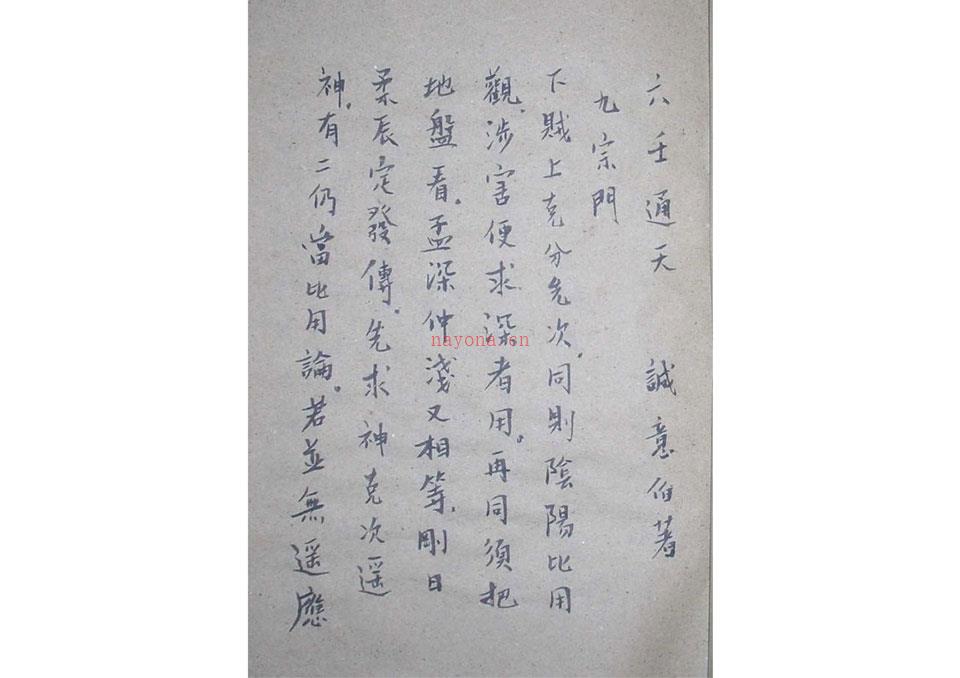 六壬通天 誠意伯著
九宗門
下賊上克分先次，同則陰陽比用
觀。涉害便求深者用。再同須把
地盤看。孟深仲淺又相等，剛日
柔辰定發傳。先求神克次遥
神。有二仍當比用論。若並無遥應
nayona.cn